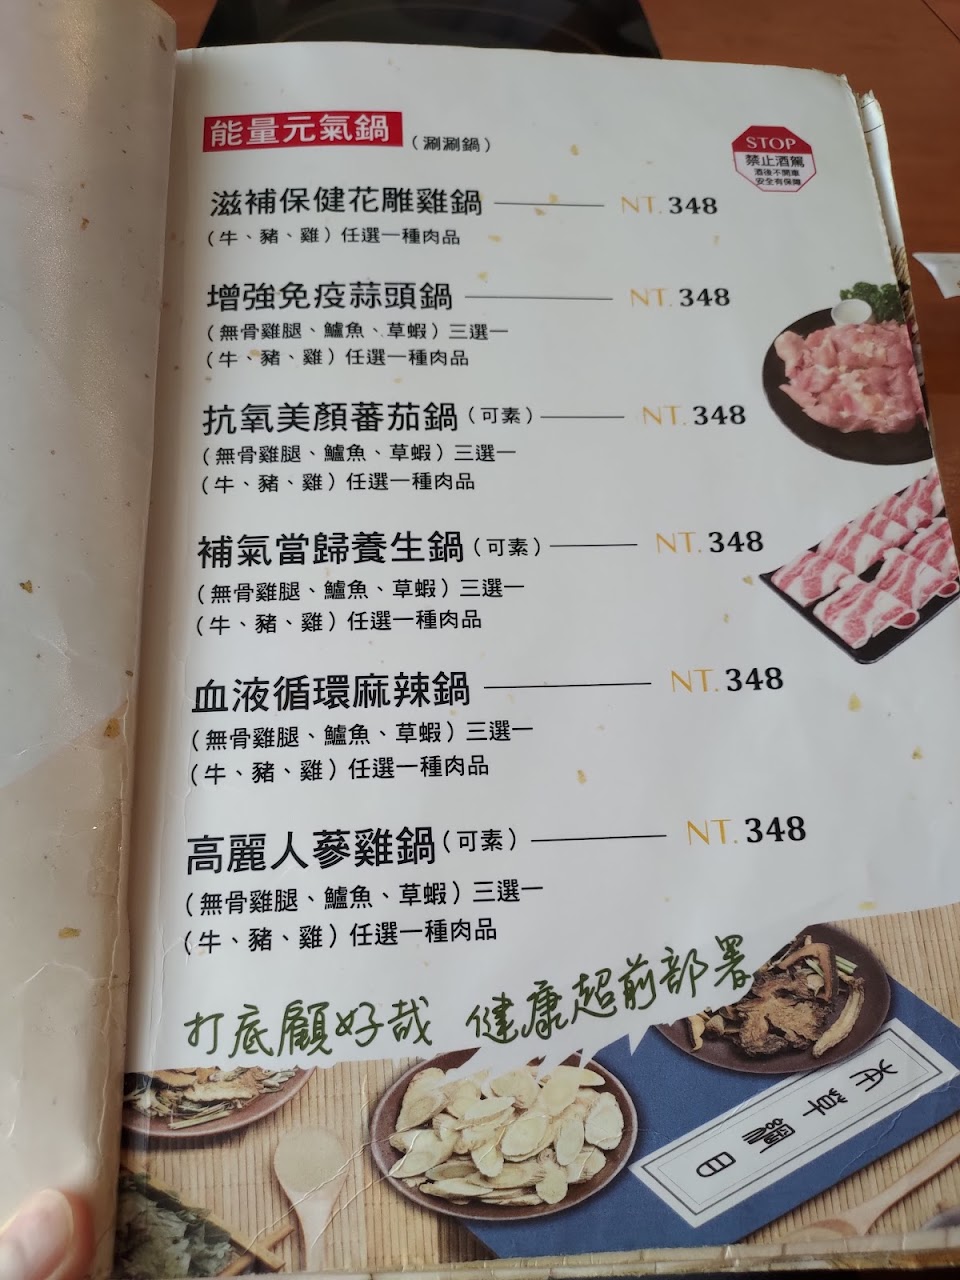 能量元氣鍋 (涮涮鍋)
STOP
禁止酒駕
酒後不開車
安全有保障
滋補保健花雕雞鍋 NT. 348
(牛、豬、雞) 任選一種肉品
增強免疫蒜頭鍋 NT. 348
(無骨雞腿、鱸魚、草蝦) 三選一
(牛、豬、雞) 任選一種肉品
抗氧美顏蕃茄鍋 (可素) NT. 348
(無骨雞腿、鱸魚、草蝦) 三選一
(牛、豬、雞) 任選一種肉品
補氣當歸養生鍋 (可素) NT. 348
(無骨雞腿、鱸魚、草蝦) 三選一
(牛、豬、雞) 任選一種肉品
血液循環麻辣鍋 NT. 348
(無骨雞腿、鱸魚、草蝦) 三選一
(牛、豬、雞) 任選一種肉品
高麗人蔘雞鍋 (可素) NT. 348
(無骨雞腿、鱸魚、草蝦) 三選一
(牛、豬、雞) 任選一種肉品
打底顧好哉 健康超前部署
本草綱目